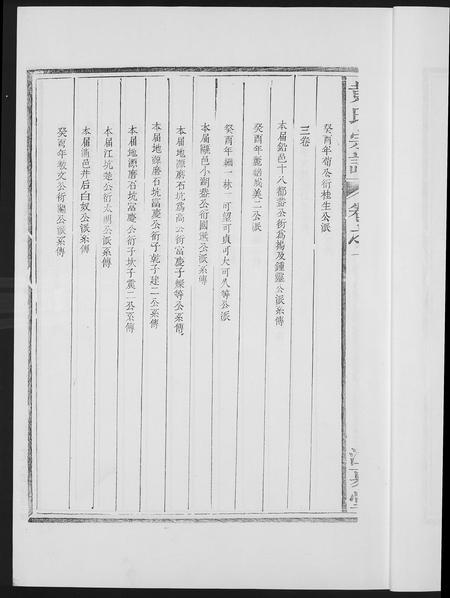 黃氏宗譜 卷之一
江夏堂
癸酉年荀公衍桂生公派
三卷
本届鉛邑十八都嵞公衍鳳揚及鍾靈公派系傳
癸酉年 二公派
癸酉年 一林一可望可貞可大可久等公派
本届 邑小湖嵞公衍國 公派系傳
本届地源磨石坑 高公衍富慶子 等公系傳
本届地源磨石坑富慶公衍子乾子建二公系傳
本届地源磨石坑富慶公衍子坎子震二公系傳
本届江坑 公衍太 公派系傳
本届 邑井后白奴公派系傳
癸酉年 文公衍 公派系傳